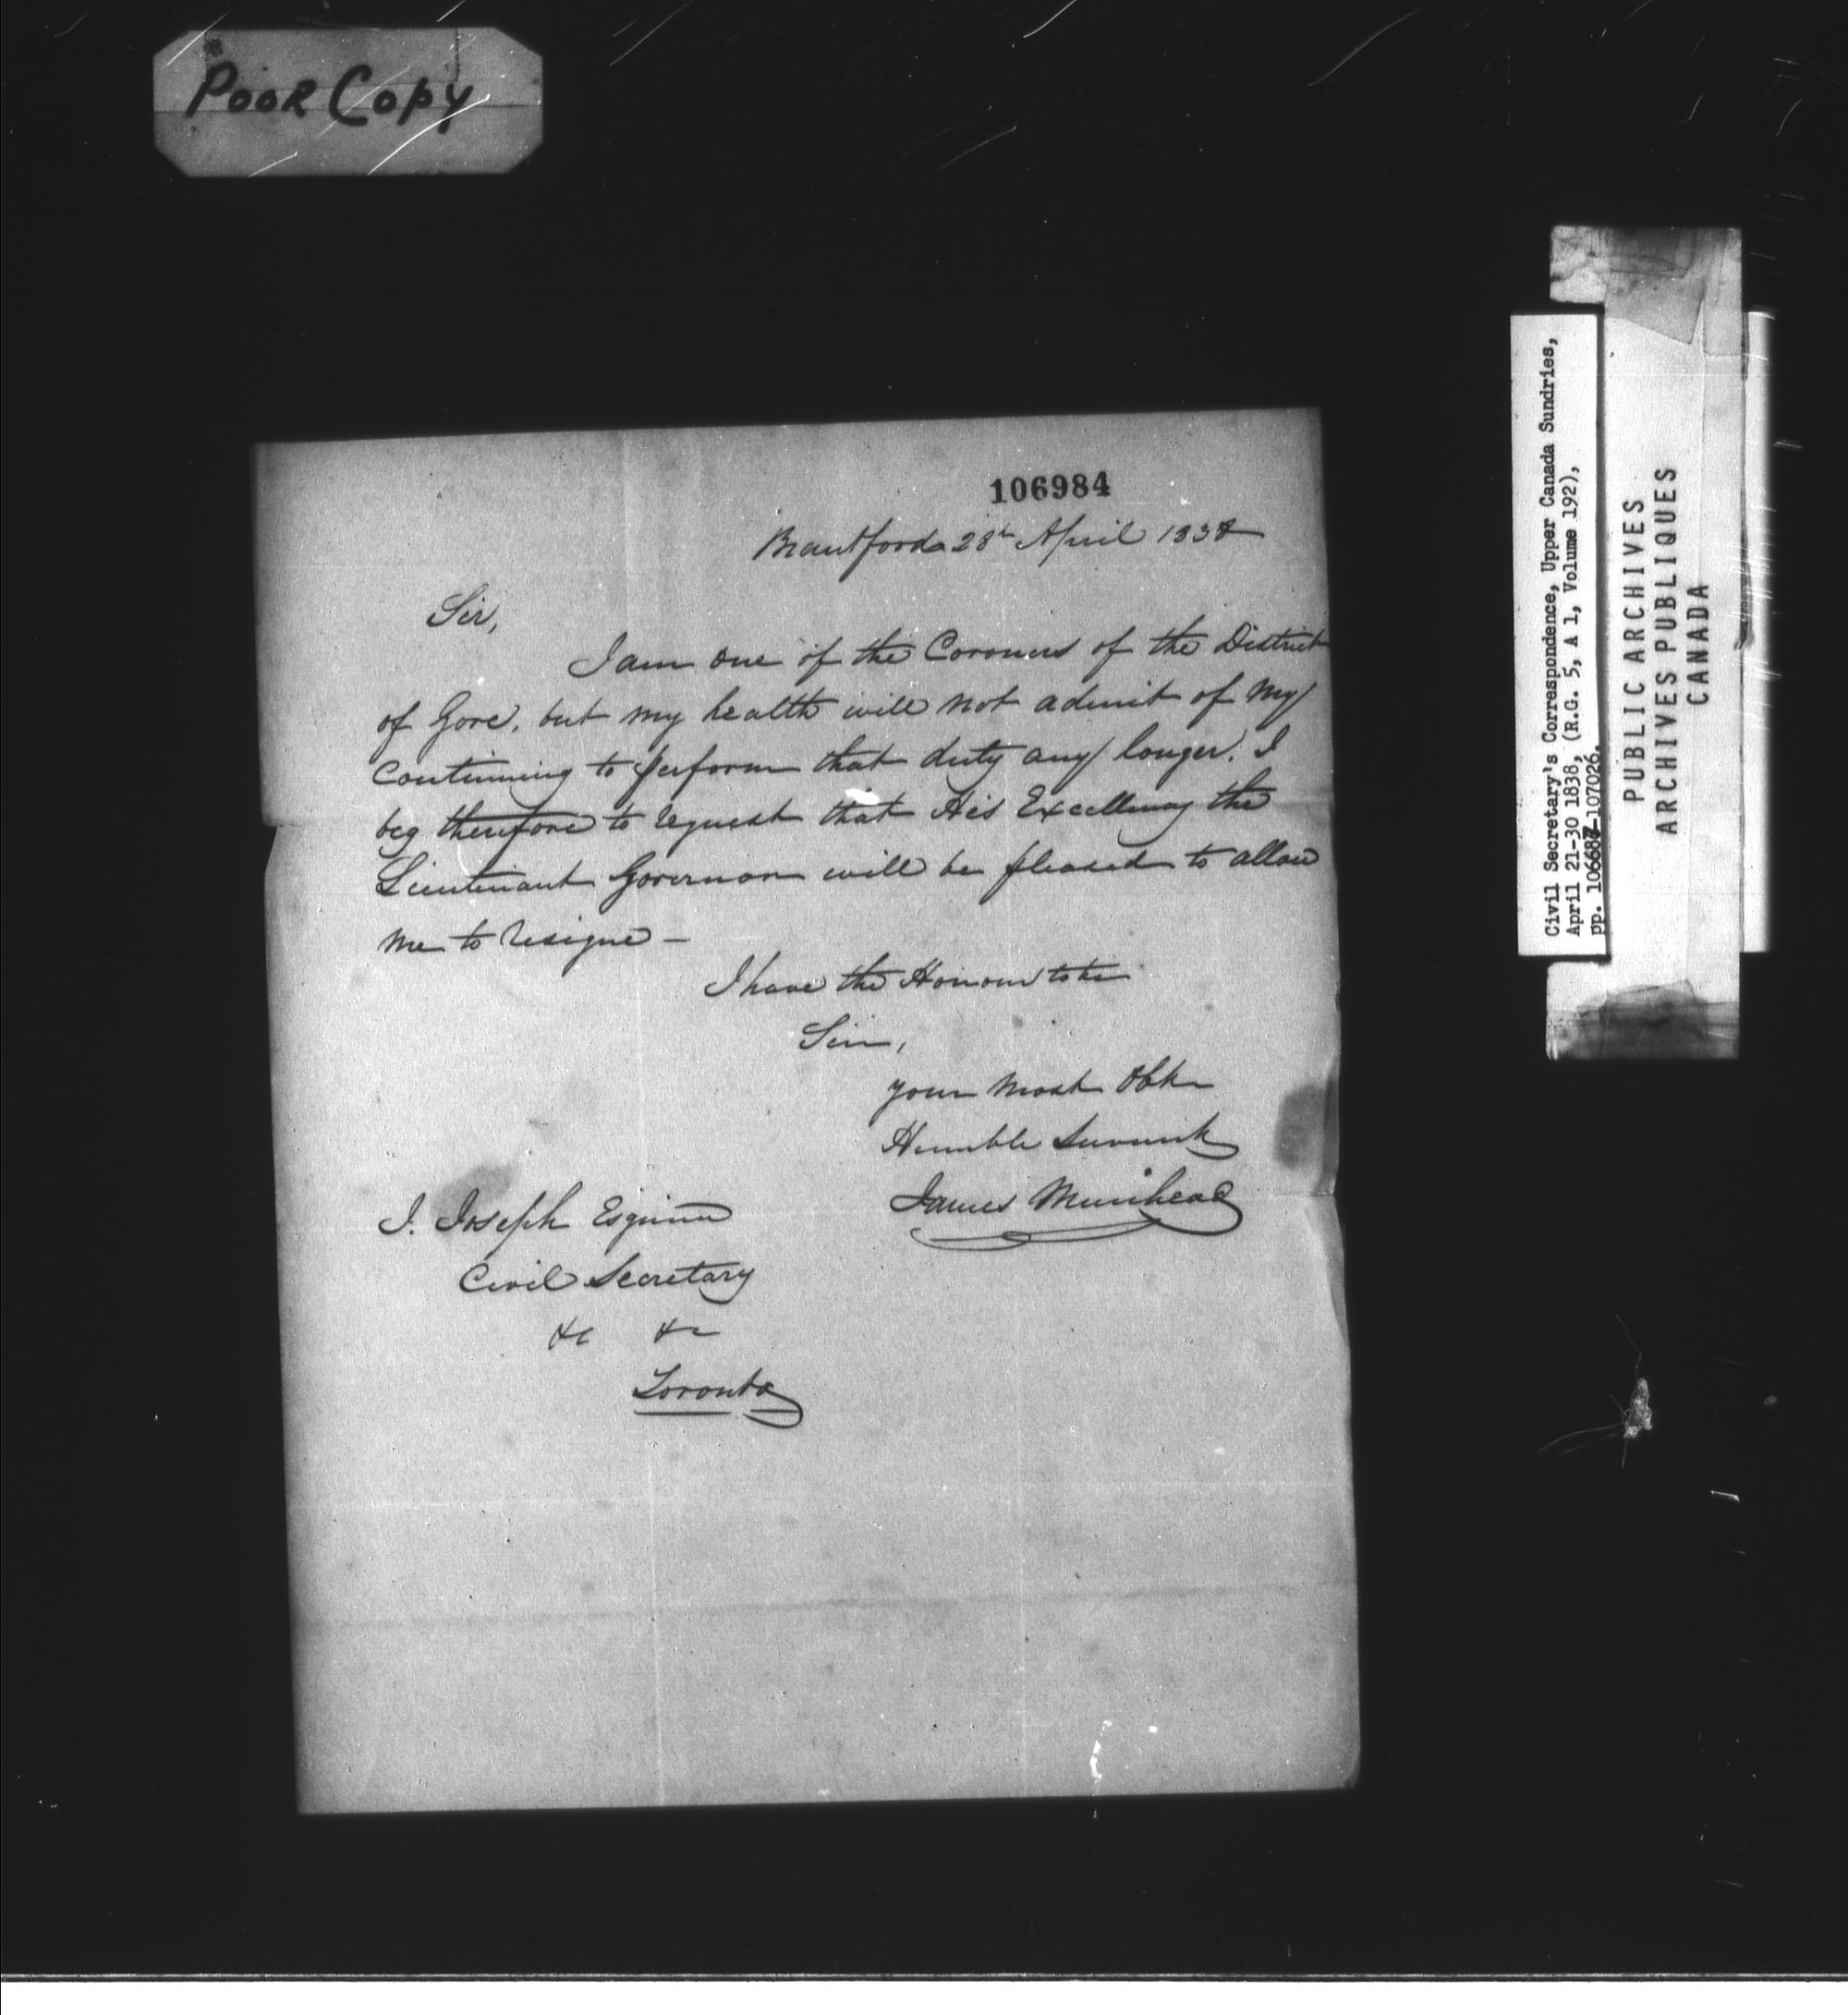 Poor Copy
106984
Brantford 28th April 1838
Sir,
I am one of the Coroners of the District
of Gore, but my health will not admit of my
continuing to perform that duty any longer. I
beg therefore to request that His Excellency the
Lieutenant Governor will be pleased to allow
me to resigne —
I have the Honour to be
Sir,
your most Obt
Humble Servant
James Muirhead
J. Joseph Esquire
Civil Secretary
&c &c
Toronto
Civil Secretary's Correspondence, Upper Canada Sundries,
April 21-30 1838, (R.G. 5, A 1, Volume 192),
pp. 106687-107026.
PUBLIC ARCHIVES
ARCHIVES PUBLIQUES
CANADA